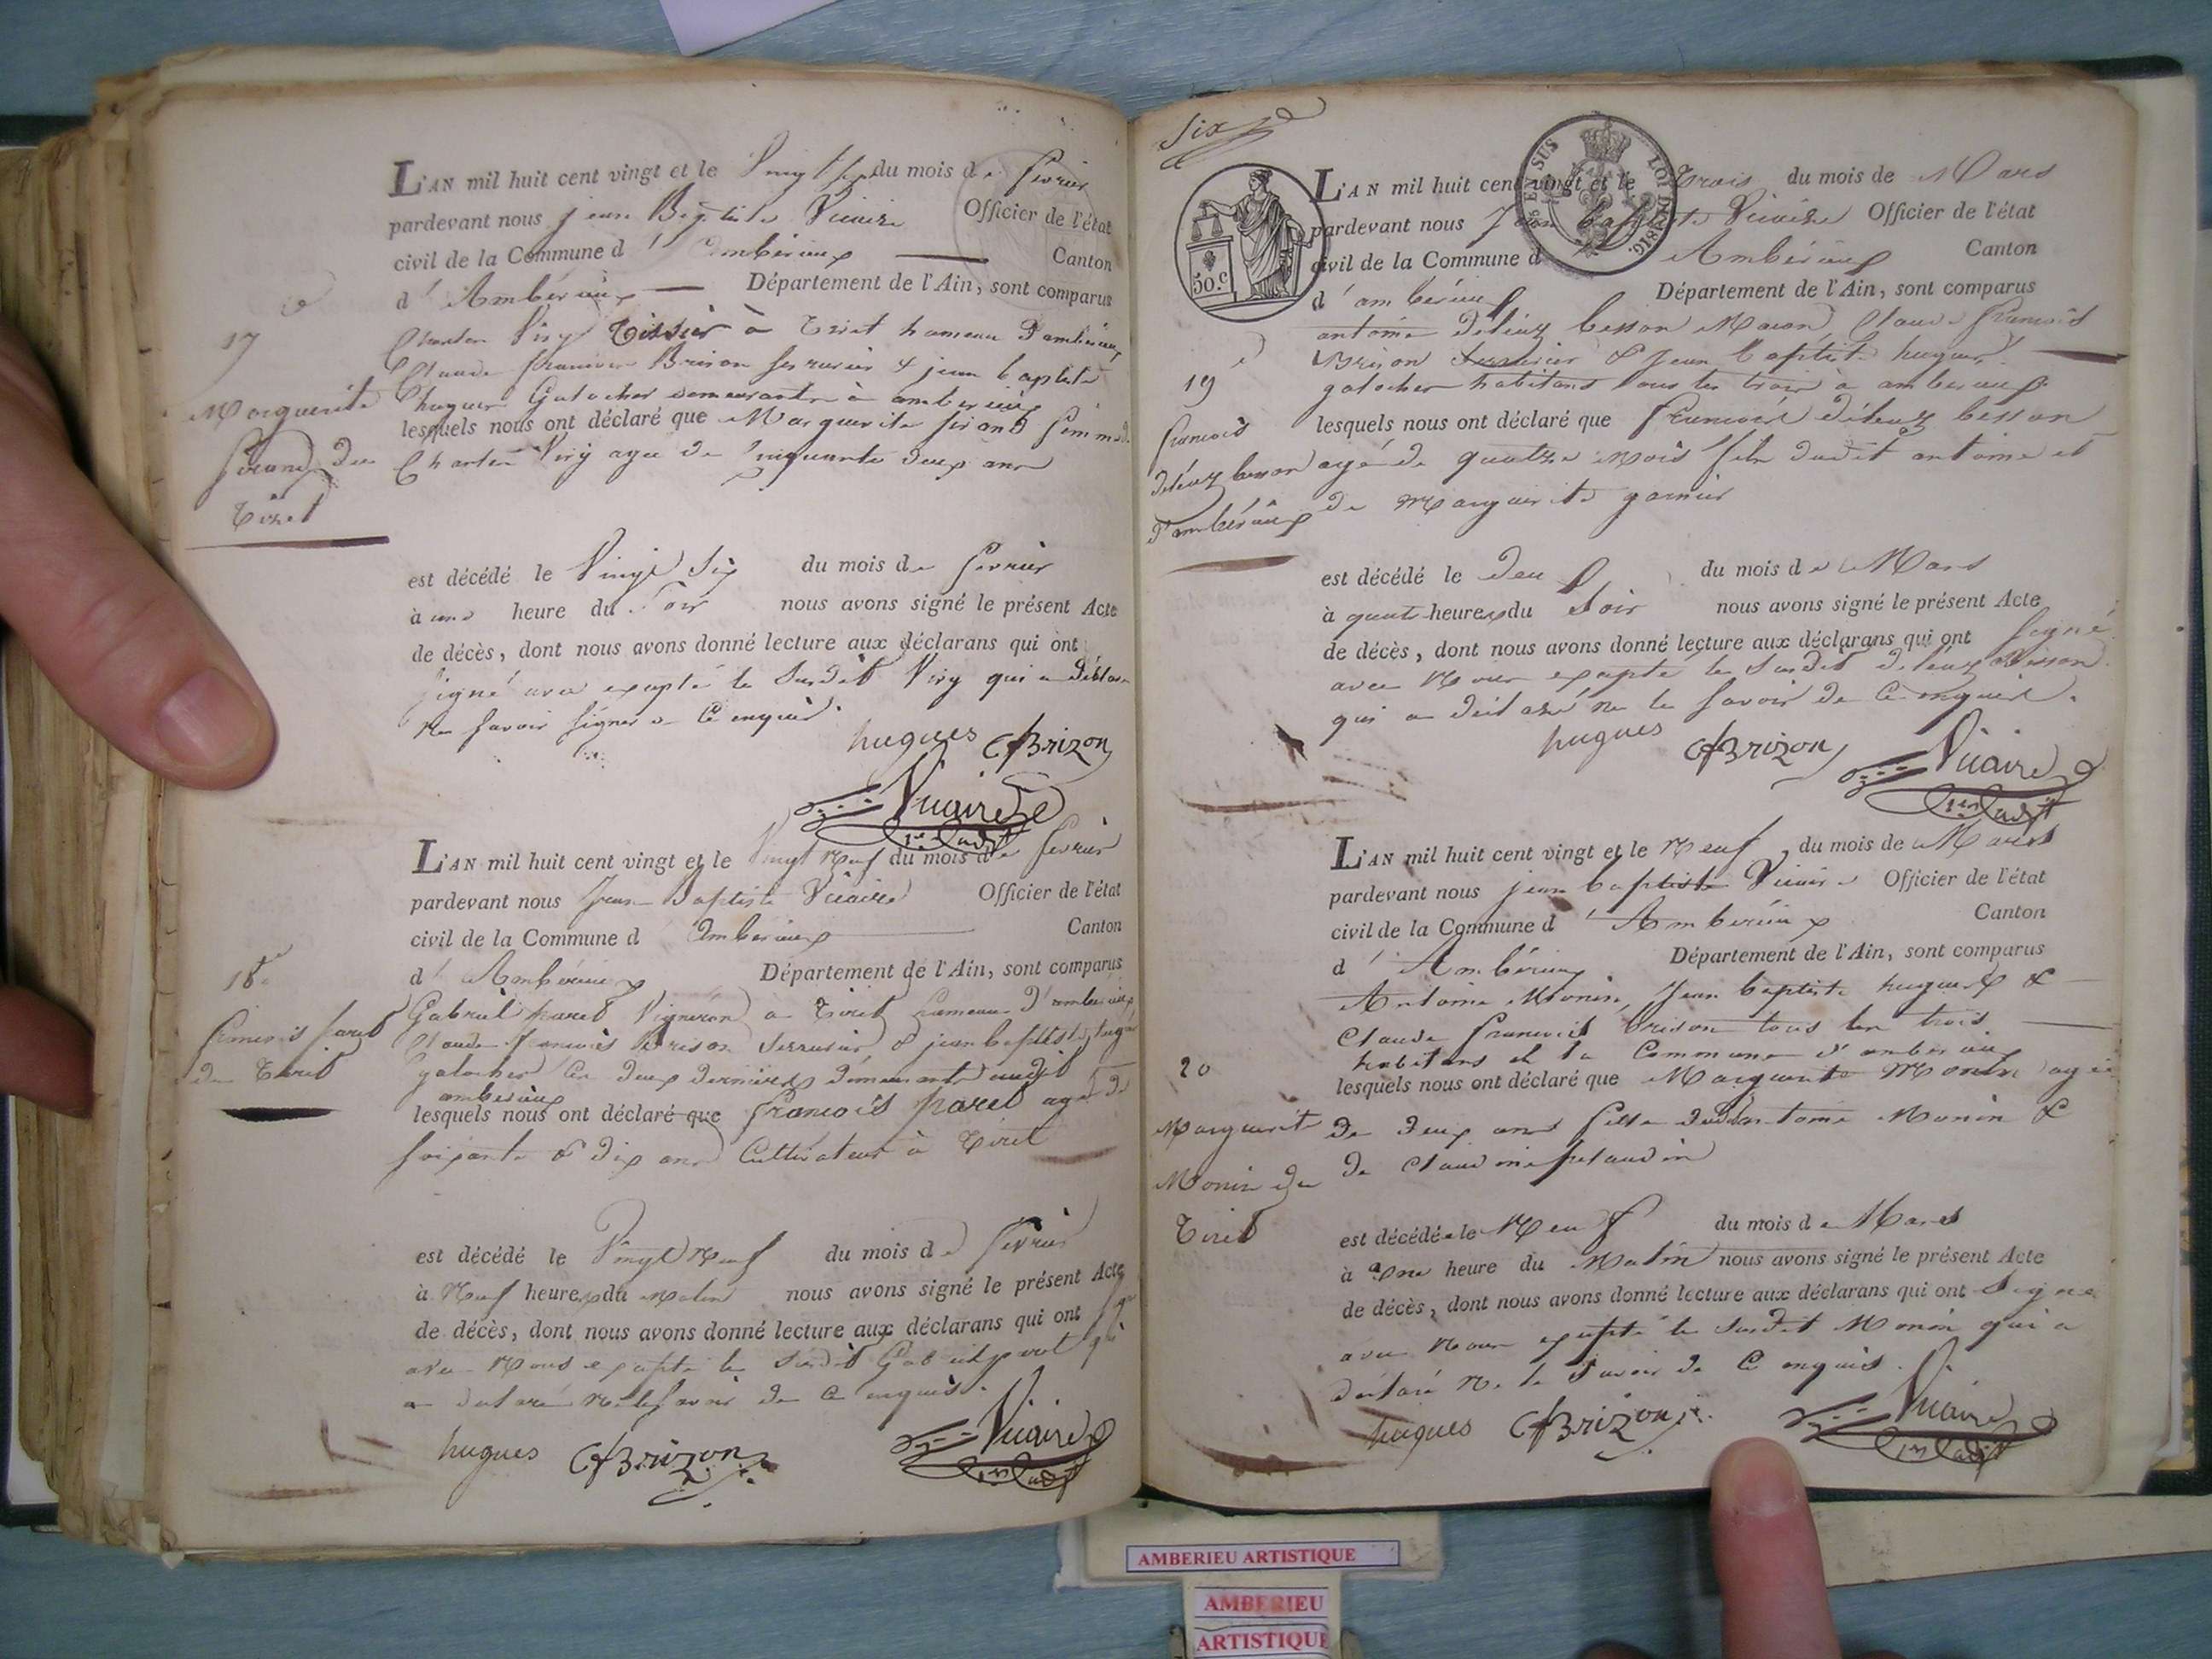 17
Marguerite
Tiret
L'AN mil huit cent vingt et le Vingt Sept du mois de fevrier
pardevant nous jean Baptiste Vicaire Officier de l'état
civil de la Commune d' amberieux Canton
d' Ambérieux Département de l'Ain, sont comparus
Viry Tissier à Tiret hameau d'ambérieux
Claude francois Brison serrurier & jean baptiste
hugues Galocher demeurants à amberieux
lesquels nous ont déclaré que Marguerite
Viry agée de Cinquante deux ans
est décédé le Vingt Six du mois de fevrier
à une heure du Soir nous avons signé le présent Acte
de décès, dont nous avons donné lecture aux déclarans qui ont
signé avec excepté le Susdit Viry qui a déclaré
Ne Savoir signer de Ce enquis.
hugues CfBrizon
Vicaire
1er adjt
18
francois paret
de Tiret
L'AN mil huit cent vingt et le Vingt Neuf du mois de fevrier
pardevant nous Jean Baptiste Vicaire Officier de l'état
civil de la Commune d' amberieux Canton
d' Ambérieux Département de l'Ain, sont comparus
Gabriel paret Vigneron à Tiret hameau d'amberieux
Claude francois Brison Serrurier & jean baptiste hugues
galocher Ces deux derniers demeurants audit
amberieux
lesquels nous ont déclaré que francois paret agé de
soixante & dix ans Cultivateur à Tiret
est décédé le Vingt Neuf du mois de fevrier
à Neuf heures du matin nous avons signé le présent Acte
de décès, dont nous avons donné lecture aux déclarans qui ont signé
avec Nous excepté le Susdit Gabriel paret qui
a declaré Ne le Savoir de Ce enquis.
hugues CfBrizon
Vicaire
1er adjt
Six
50.c
LOI DE 1816.
EN SUS
19
francois
d'ambérieux
L'AN mil huit cent vingt et le Trois du mois de Mars
pardevant nous Jean baptiste Vicaire Officier de l'état
civil de la Commune d' Ambérieux Canton
d' ambérieux Département de l'Ain, sont comparus
antoine besson Macon, Claude francois
Brison Serrurier & Jean baptiste hugues
galocher habitans tous les trois à amberieux
lesquels nous ont déclaré que francois besson
agé de quatre mois fils dudit antoine et
de Marguerite garnier
est décédé le deux du mois de Mars
à quatre heures du Soir nous avons signé le présent Acte
de décès, dont nous avons donné lecture aux déclarans qui ont signé
avec Nous excepté le Susdit
qui a declaré ne le Savoir de Ce enquis.
hugues CfBrizon
Vicaire
1er adjt
20
Marguerite
Monin de
Tiret
L'AN mil huit cent vingt et le Neuf du mois de Mars
pardevant nous jean baptiste Vicaire Officier de l'état
civil de la Commune d' Ambérieux Canton
d' Ambérieux Département de l'Ain, sont comparus
Antoine Monin, Jean baptiste hugues &
Claude francois brison tous les trois
habitans de la Commune d'amberieux
lesquels nous ont déclaré que Marguerite Monin agée
de deux ans fille dudit antoine Monin &
de Claudine
est décédée le Neuf du mois de Mars
à Une heure du Matin nous avons signé le présent Acte
de décès, dont nous avons donné lecture aux déclarans qui ont Signé
avec Nous excepté le Susdit Monin qui a
déclaré Ne le Savoir de Ce enquis.
hugues CfBrizon
Vicaire
1er adjt
AMBERIEU ARTISTIQUE
AMBERIEU
ARTISTIQUE